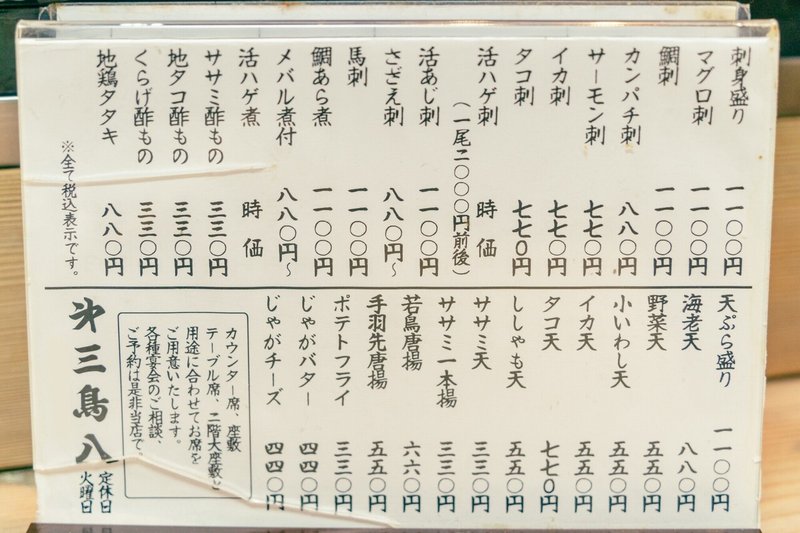 刺身盛り 一一〇〇円
マグロ刺 一一〇〇円
鯛刺 一一〇〇円
カンパチ刺 八八〇円
サーモン刺 七七〇円
イカ刺 七七〇円
タコ刺 七七〇円
活ハゲ刺 時価
(一尾二〇〇〇円前後)
活あじ刺 一一〇〇円
さざえ刺 八八〇円〜
馬刺 一一〇〇円
鯛あら煮 一一〇〇円
メバル煮付 八八〇円〜
活ハゲ煮 時価
ササミ酢もの 三三〇円
地タコ酢もの 三三〇円
くらげ酢もの 三三〇円
地鶏タタキ 八八〇円
※全て税込表示です。
天ぷら盛り 一一〇〇円
海老天 八八〇円
野菜天 五五〇円
小いわし天 五五〇円
イカ天 五五〇円
タコ天 七七〇円
ししゃも天 五五〇円
ササミ天 三三〇円
ササミ一本揚 三三〇円
若鳥唐揚 六六〇円
手羽先唐揚 五五〇円
ポテトフライ 三三〇円
じゃがバター 四四〇円
じゃがチーズ 四四〇円
カウンター席、座敷
テーブル席、二階大座敷と
用途に合わせてお席を
ご用意いたします。
各種宴会のご相談、
ご予約は是非当店で。
㐧三鳥八
定休日
火曜日